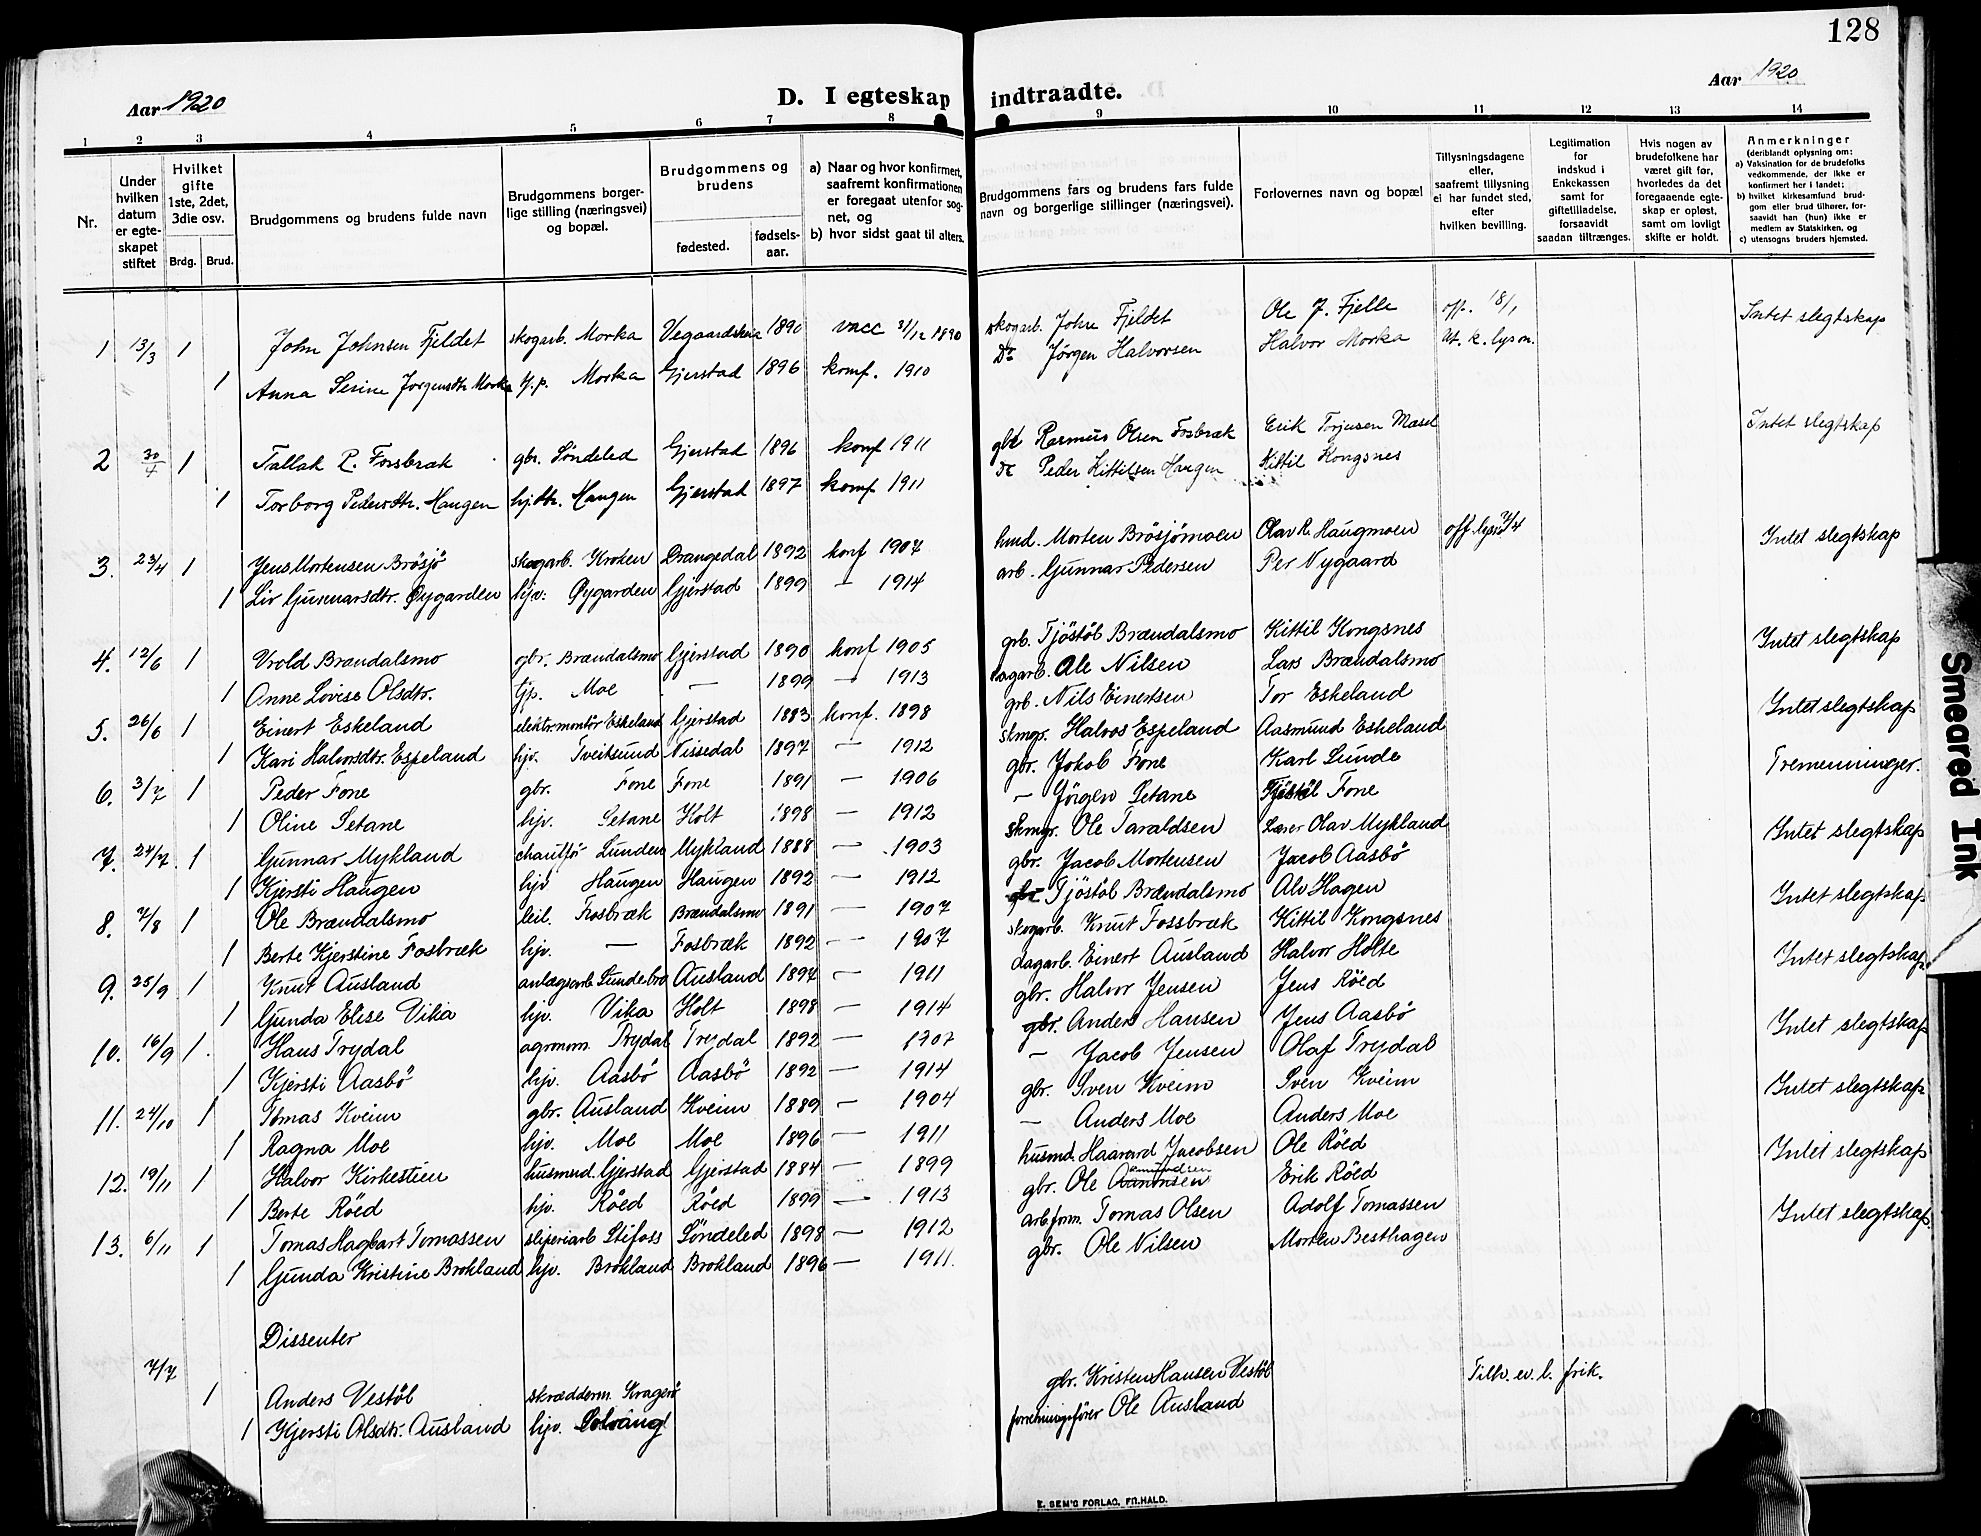 128
Aar 1920 D. I egteskap indtraadte. Aar 1920
1 2 3 4 5 6 7 8 9 10 11 12 13 14
Nr.
Under hvilken datum er egteskapet stiftet
Hvilket gifte 1ste, 2det, 3die osv.
Brdg. Brud.
Brudgommens og brudens fulde navn
Brudgommens borgerlige stilling (næringsvei) og bopæl.
Brudgommens og brudens
fødested. fødselsaar.
a) Naar og hvor konfirmert, saafremt konfirmationen er foregaat utenfor sognet, og
b) hvor sidst gaat til alters.
Brudgommens fars og brudens fars fulde navn og borgerlige stillinger (næringsvei).
Forlovernes navn og bopæl
Tillysningsdagene eller, saafremt tillysning ei har fundet sted, efter hvilken bevilling.
Legitimation for indskud i Enkekassen samt for giftetilladelse, forsaavidt saadan tiltrænges.
Hvis nogen av brudefolkene har været gift før, hvorledes da det foregaaende egteskap er opløst, samt om lovligt skifte er holdt.
Anmerkninger
(deriblandt oplysning om:
a) Vaksination for de brudefolks vedkommende, der ikke er konfirmert her i landet;
b) hvilket kirkesamfund brudgom eller brud tilhører, forsaavidt han (hun) ikke er medlem av Statskirken, og
c) utensogns bruders hjemsted.
1 13/3 1 John Johnsen Fjeldet skogarb. Morka Vegaardsheia 1890 vacc 31/12 1890 skogarb. John Fjeldet Ole J. Fjelle off. 18/1 Intet slegtskap
1 Anna Serine Jorgensdtr Morka Morka Gjerstad 1896 komf. 1910 Do Jørgen Halvorsen Halvor Morka Ut. k. lysn.
2 30/4 1 Tallak R. Forsbræk gbr. Søndeled Gjerstad 1896 komf 1911 gbr Rasmus Olsen Fosbræk Erik Torjusen Masel Intet slegtskap
1 Torborg Pedersdtr. Haugen hj.dtr. Haugen Gjerstad 1897 komf 1911 Do Peder Kittilsen Haugen Kittil Kongsnes
3. 23/4 1 Jens Mortensen Brösjö skogarb. Kroken Drangedal 1892 konf 1907 husd. Morten Brösjömoen Olav R. Haugmoen off. lysn 7/4 Intet slegtskap
1 Liv Gunnarsdtr. Øygarden hjv. Øygarden Gjerstad 1899 — 1914 arb. Gunnar Pedersen Per Nygaard
4. 12/6 1 Vrold Brændalsmo gbr. Brændalsmo Gjerstad 1890 konf 1905 gb. Tjöstöl Brændalsmo Kittil Kongsnes Intet slegtskap
1 Anne Lovise Olsdtr. Moe — 1899 — 1913 dagarb. Ole Nilsen Lars Brændalsmo
5. 26/6 1 Einert Eskeland elektr.montör Eskeland Gjerstad 1883 konf. 1898 gb. Nils Einertsen Tor Eskeland Intet slegtskap
1 Kari Halvorsdtr. Espeland hjv. Tveitsund Nissedal 1897 — 1912 skmgr. Halvor Espeland Aasmund Eskeland
6. 3/7 1 Peder Fone gbr. Fone Fone 1891 — 1906 gbr. Jokob Fone Karl Lunde Tremenninger.
1 Oline Setane hjv. Setane Holt 1898 — 1912 — Jörgen Setane Tjöstöl Fone
7. 24/7 1 Gunnar Mykland chauffør Lunden Mykland 1888 — 1903 skmgr. Ole Taraldsen Lærer Olav Mykland Intet slegtskap
1 Kjersti Haugen hjv Haugen Haugen 1892 — 1912 gbr. Jacob Mortensen Jacob Aasbö
8. 7/8 1 Ole Brændalsmo leil. Fosbræk Brændalsmo 1891 — 1907 gbr Tjöstöl Brændalsmo Alv Hagen Intet slegtskap
1 Berte Kjerstine Fosbræk hjv. — Fosbræk 1892 — 1907 skogarb. Knut Fossbræk Kittil Kongsnes
9. 25/9 1 Knut Ausland anlægsarb. Lundebro Ausland 1894 — 1911 dagarb. Einert Ausland Halvor Holte Intet slegtskap
1 Gunda Elise Vika hjv. Vika Holt 1898 — 1914 gbr. Halvor Jensen Jens Röed
10. 16/9 1 Hans Trydal agronom. Trydal Trydal 1892 — 1707 gbr. Anders Hansen Jens Aasbö Intet slegtskap
1 Kjersti Aasbö hjv. Aasbö Aasbö 1892 — 1914 — Jacob Jensen Olaf Trydal
11. 24/10 1 Tomas Kveim gbr. Ausland Kveim 1889 — 1904 gbr. Sven Kveim Sven Kveim Intet slegtskap
1 Ragna Moe hjv. Moe Moe 1896 — 1911 — Anders Moe Anders Moe
12. 19/11 1 Halvor Kirkestien husmand Gjerstad Gjerstad 1884 — 1899 husmd. Haavard Jacobsen Ole Röed Intet slegtskap
1 Berte Röed hjv. Röed Röed 1899 — 1913 gbr. Ole Erik Röed
13. 6/11 1 Tomas Hagbart Tomassen sliperiarb Stifoss Söndeled 1898 — 1912 arb.form. Tomas Olsen Adolf Tomassen Intet slegtskap
1 Gunda Kristine Brokland hjv. Brokland Brokland 1896 — 1911. gbr. Ole Nilsen Morten Besthagen
Dissenter
7/7 1 Anders Vestöl skrædderm. Kragerö gbr. Kristen Hansen Vestöl Tilh. ev. l. frik.
1 Kjersti Olsdtr. Ausland hjv. Solvang forretningsfører Ole Ausland
E. SEM'S FORLAG, FR.HALD.
Smeared Ink